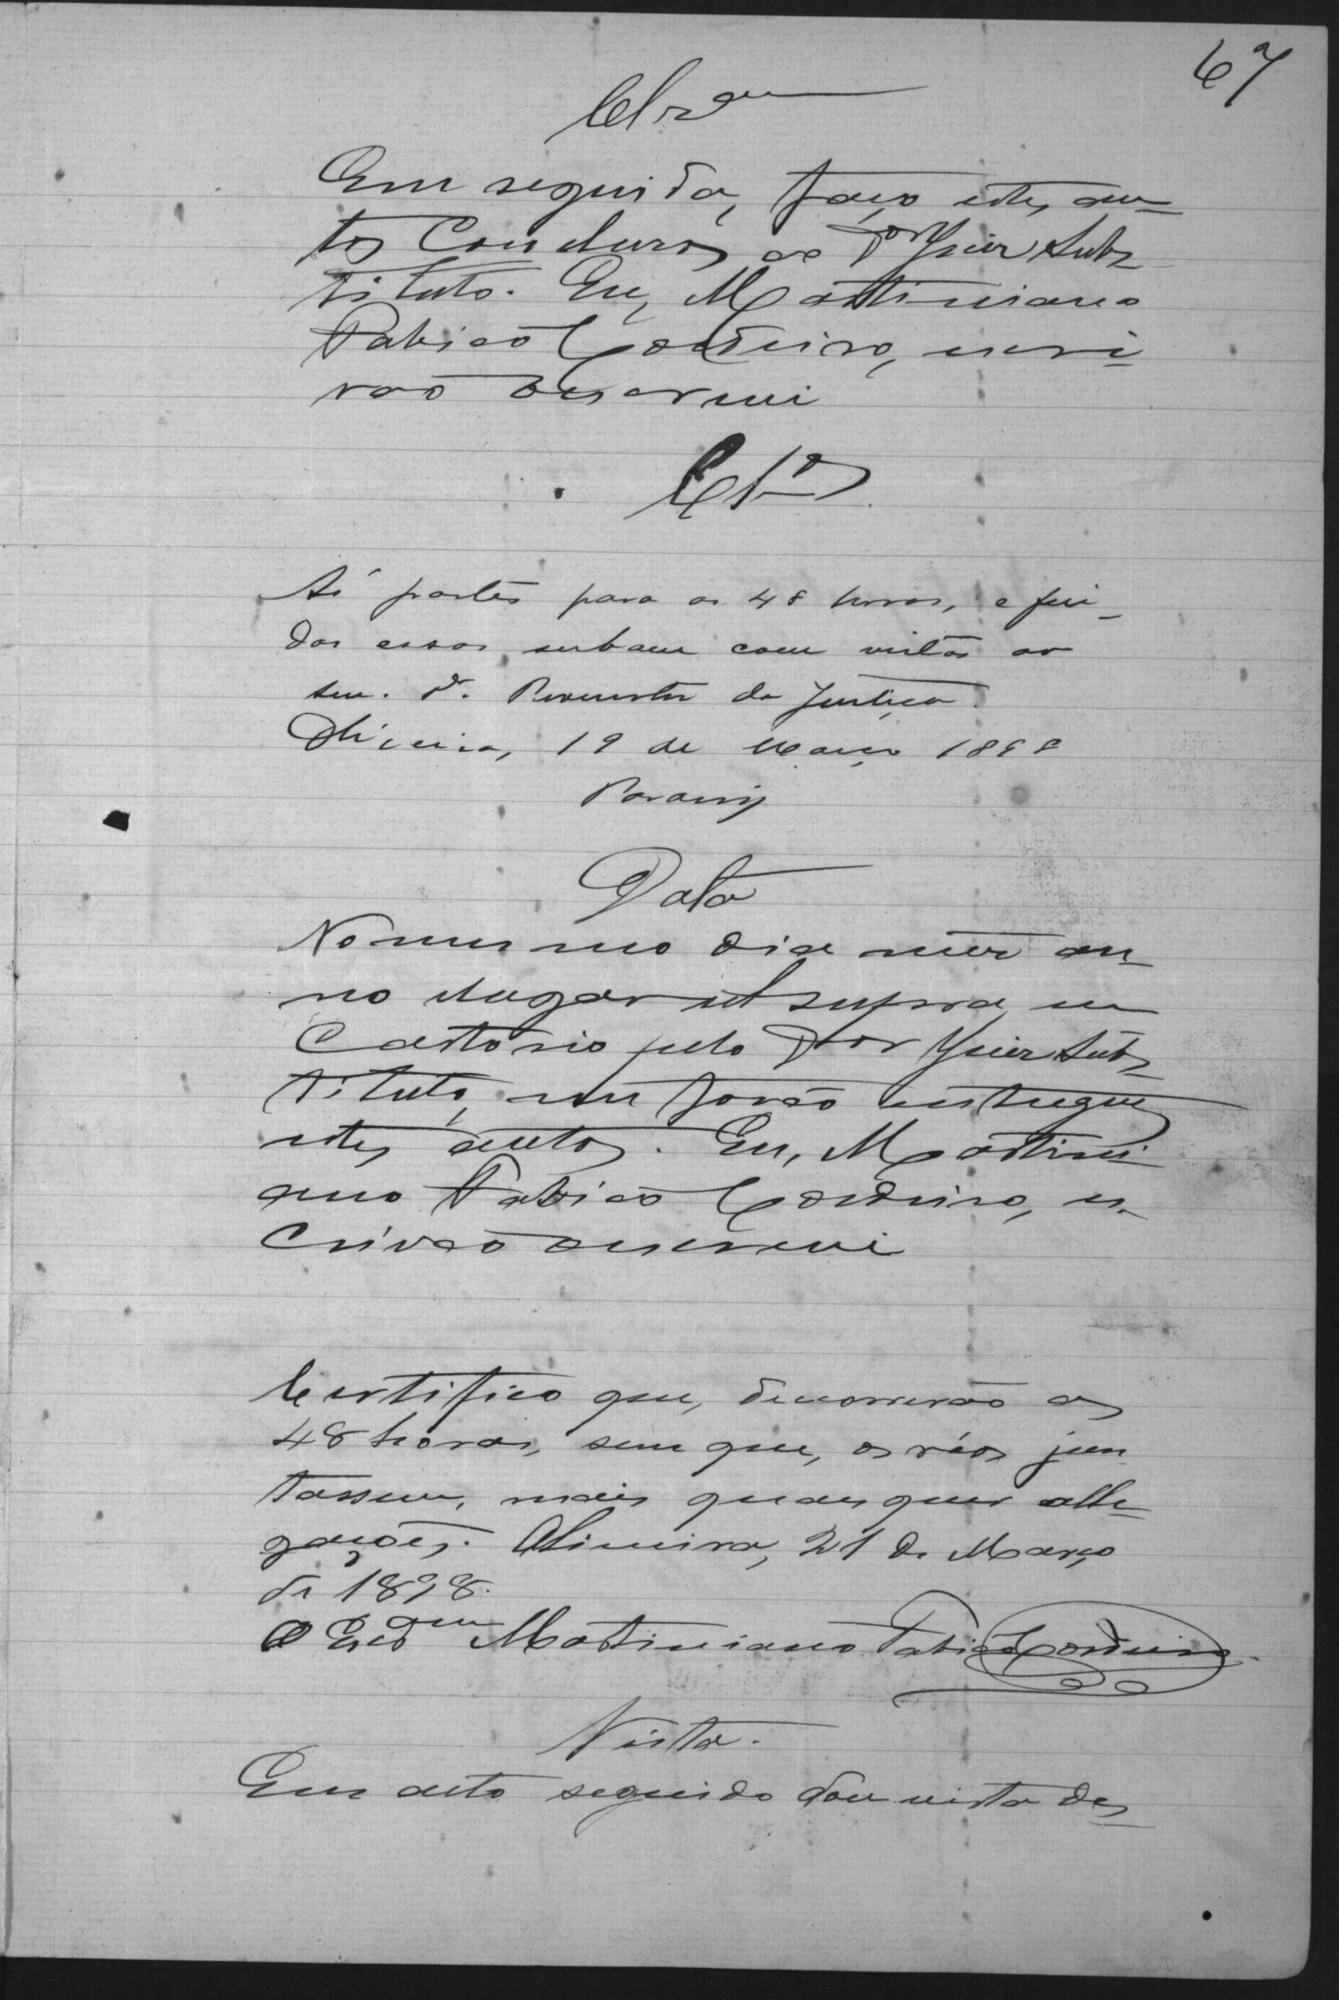 67
Clzam
Em seguida, faço estes au-
tos Conclusos ao Dor Juiz Subs-
tituto. Eu, Martiniano
Patricio Cordeiro, escri-
vão o escrevi
Clos
Ás partes para as 48 horas, e fin-
das essas subam com vistas ao
snr. dr. Promotor da Justiça.
Oliveira, 19 de Março 1898
Data
No mesmo dia mez an-
no elugar ut supra, em
Cartorio pelo Dor Juiz Subs-
tituto, me forão entregues
estes autos. Eu, Martini-
ano Patricio Cordeiro, es-
crivão o escrevi
Certifico que, decorrerão as
48 horas, sem que, os réos jun-
tassem, mais quaesquer alle-
gações. Oliveira, 21 de Março
de 1898.
O Escam Martiniano Patricio Cordeiro.
Vista.
Em acto seguido dou vista des-